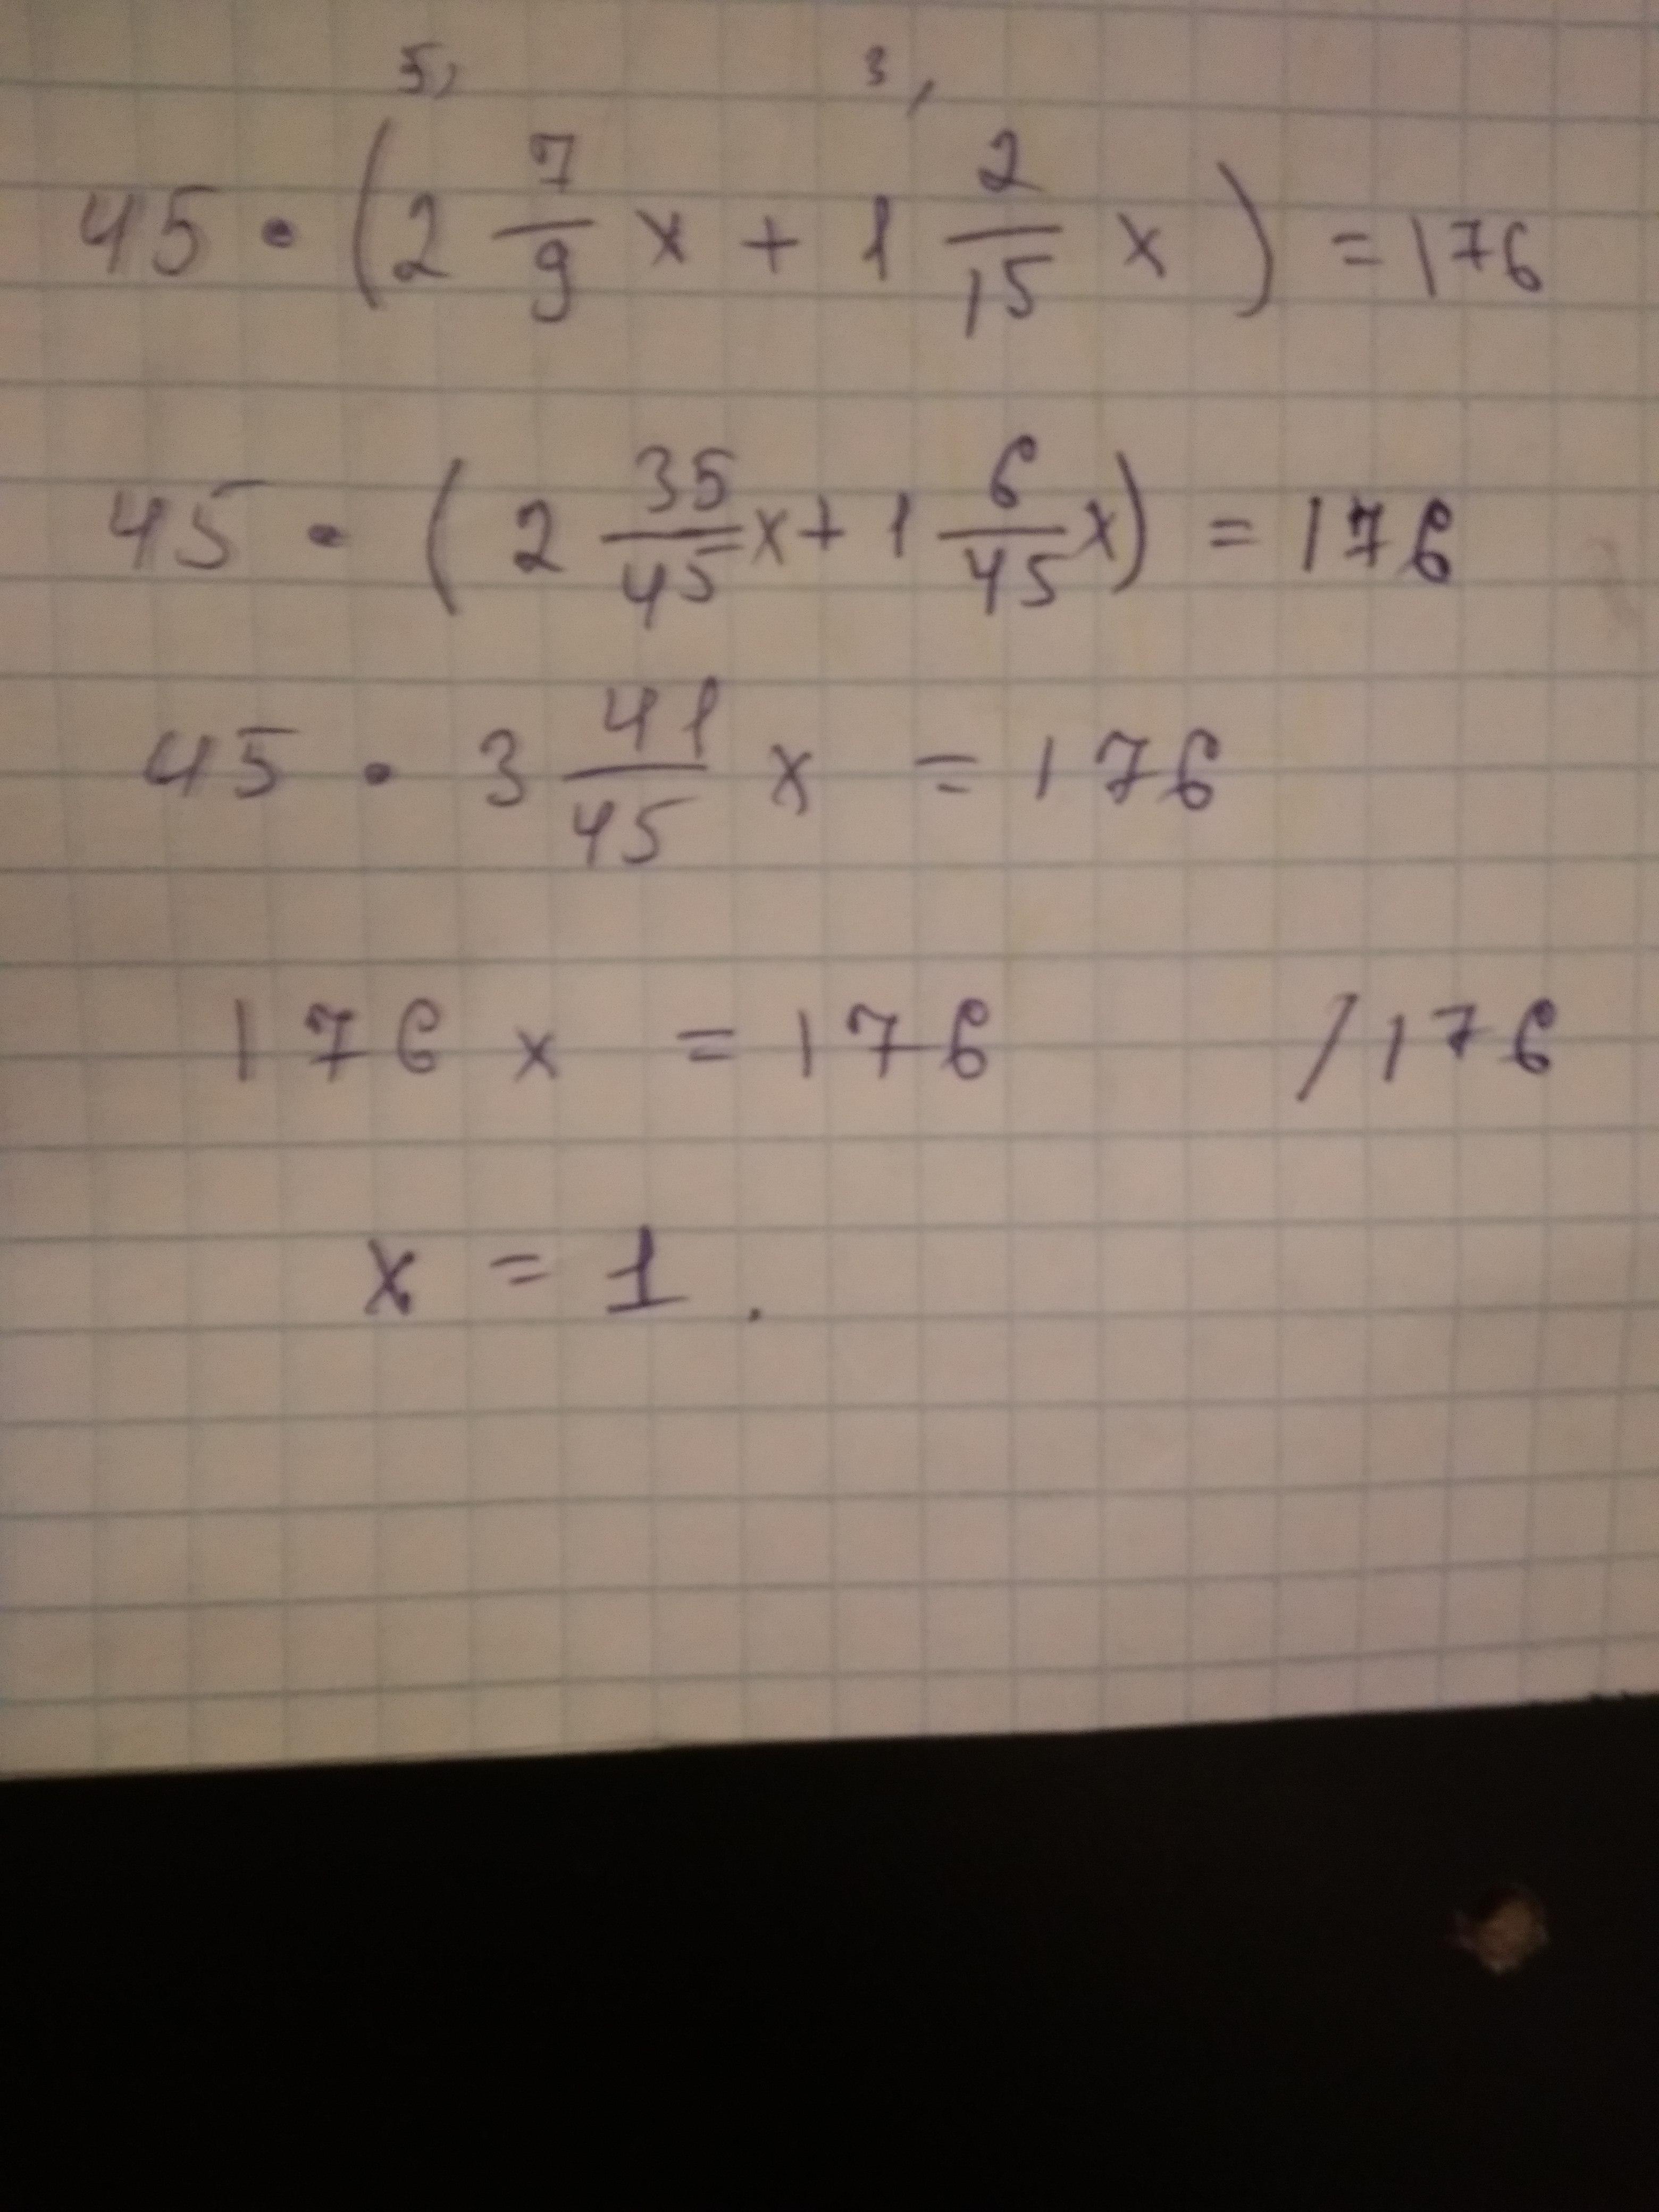 5, 3,
45 · (2 7/9 x + 1 2/15 x) = 176
45 · (2 35/45 x + 1 6/45 x) = 176
45 · 3 41/45 x = 176
176 x = 176 / 176
x = 1.